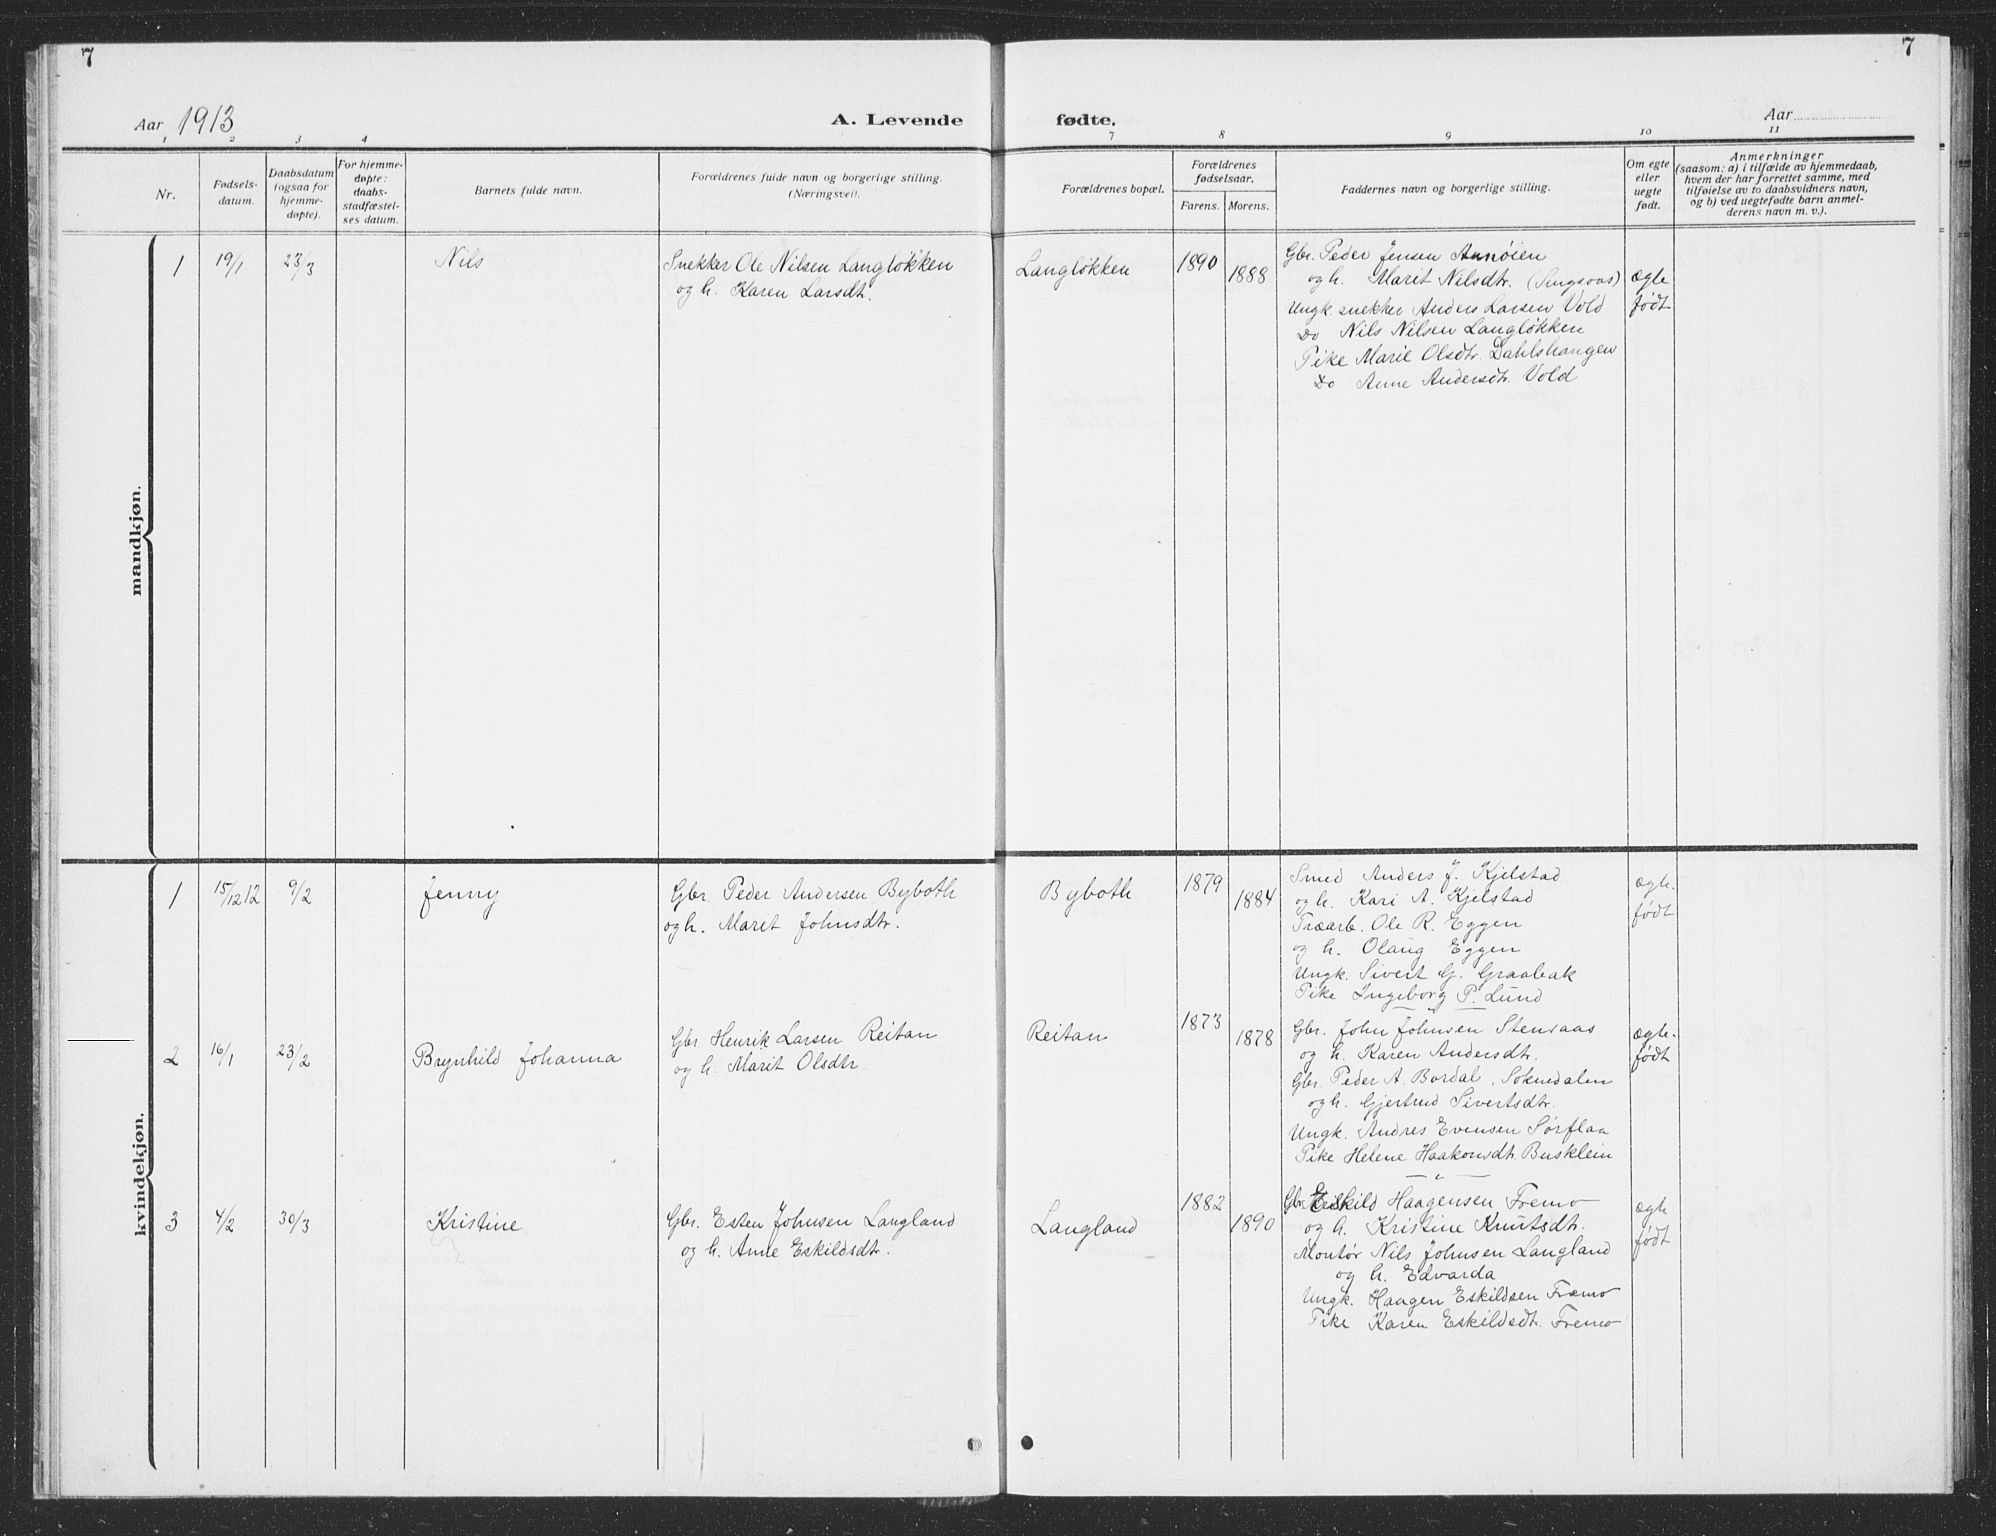 7
7
Aar 1913
A. Levende
fødte.
Aar
1 2 3 4
7 8 9 10 11
Nr.
Fødsels-
datum.
Daabsdatum
(ogsaa for
hjemme-
døpte).
For hjemme-
døpte:
daabs-
stadfæstel-
ses datum.
Barnets fulde navn.
Forældrenes fulde navn og borgerlige stilling.
(Næringsvei).
Forældrenes bopæl.
Forældrenes
fødselsaar.
Farens. Morens.
Faddernes navn og borgerlige stilling.
Om egte
eller
uegte
født.
Anmerkninger
(saasom: a) i tilfælde av hjemmedaab,
hvem der har forrettet samme, med
tilføielse av to daabsvidners navn,
og b) ved uegtefødte barn anmel-
derens navn m. v.).
mandkjøn.
1 19/1 23/3 Nils
Snekker Ole Nilsen Langløkken
og h. Karen Larsdt.
Langløkken 1890 1888
Gbr. Peder Jensen Aunøien
og h. Marit Nilsdtr. (Singsaas)
Ungk. snekker Anders Larsen Vold
Do Nils Nilsen Langløkken
Pike Marie Olsdtr. Dahlshaugen
Do Anne Andersdtr. Vold
ægte
født
kvindekjøn.
1 15/12 12 9/2 Jenny
Gbr. Peder Andersen Byboth
og h. Marit Johnsdtr.
Byboth 1879 1884
Smed Anders J. Kjelstad
og h. Kari A. Kjelstad
Træarb. Ole R. Eggen
og h. Olaug Eggen
Ungk. Sivert G. Graabak
Pike Ingeborg P. Lund
ægte.
født
2 16/1 23/2 Brynhild Johanna
Gbr Henrik Larsen Reitan
og h. Marit Olsdtr
Reitan 1873 1878
Gbr. John Johnsen Stensaas
og h. Karen Andersdtr.
Gbr. Peder A. Bordal, Soknedalen
og h. Gjertrud Sivertsdtr.
Ungk. Andres Evensen Sørflaa
Pike Helene Haakonsdt. Busklein
ægte-
født
3 4/2 30/3 Kristine
Gbr. Esten Johnsen Langland
og h. Anne Eskildsdtr.
Langland 1882 1890
Gbr. Eskild Haagensen Fremo
og h. Kristine Knutsdtr.
Montør Nils Johnsen Langland
og h. Edvarda
Ungk. Haagen Eskildsen Fremo
Pike Karen Eskildsdt. Fremo
ægte
født